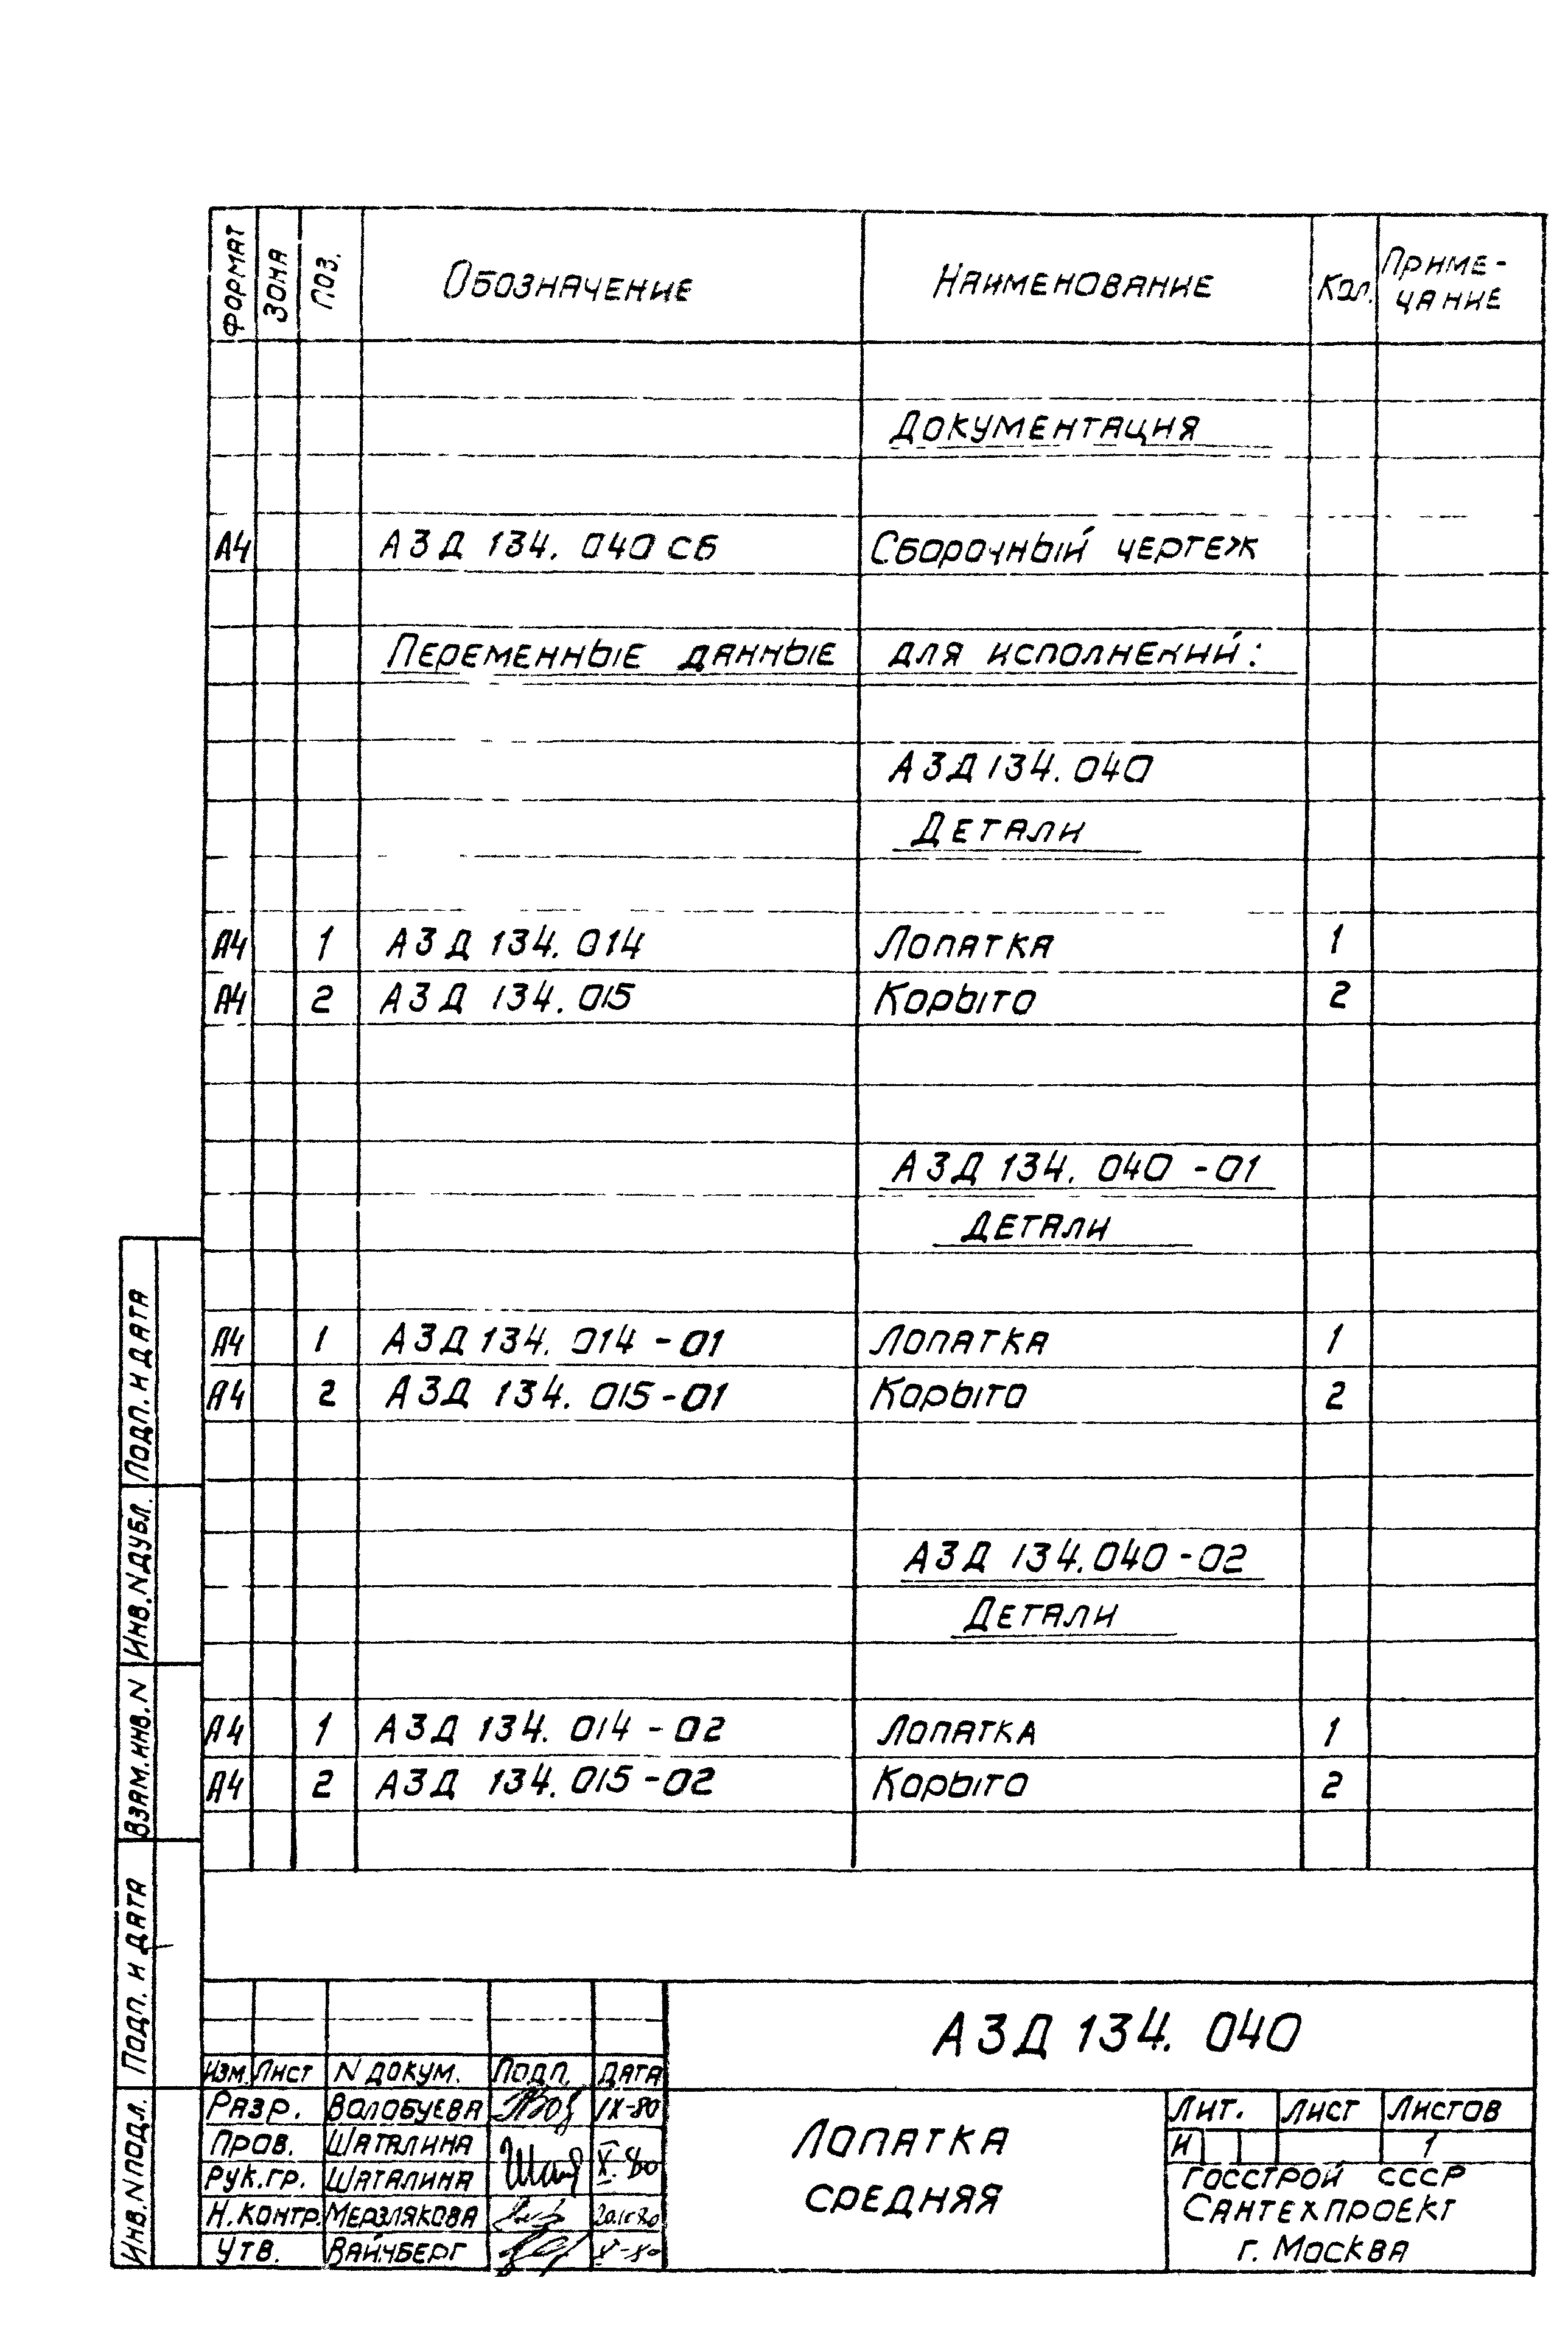 Формат Зона Поз. Обозначение Наименование Кол. Приме-
чание
Документация
А4 А3Д 134.040 СБ Сборочный чертеж
Переменные данные для исполнений:
А3Д 134.040
Детали
А4 1 А3Д 134.014 Лопатка 1
А4 2 А3Д 134.015 Корыто 2
А3Д 134.040-01
Детали
А4 1 А3Д 134.014-01 Лопатка 1
А4 2 А3Д 134.015-01 Корыто 2
А3Д 134.040-02
Детали
А4 1 А3Д 134.014-02 Лопатка 1
А4 2 А3Д 134.015-02 Корыто 2
Подп. и дата
Инв. N дубл.
Взам. инв. N
Подп. и дата
Инв. N подл.
А3Д 134.040
Изм. Лист N докум. Подп. Дата
Разр. Волобуева IX-80
Пров. Шаталина
Рук. гр. Шаталина X-80
Н. контр. Мерзлякова
Утв. Вайчберг X-80
Лопатка
средняя
Лит. Лист Листов
И 1
Госстрой СССР
Сантехпроект
г. Москва